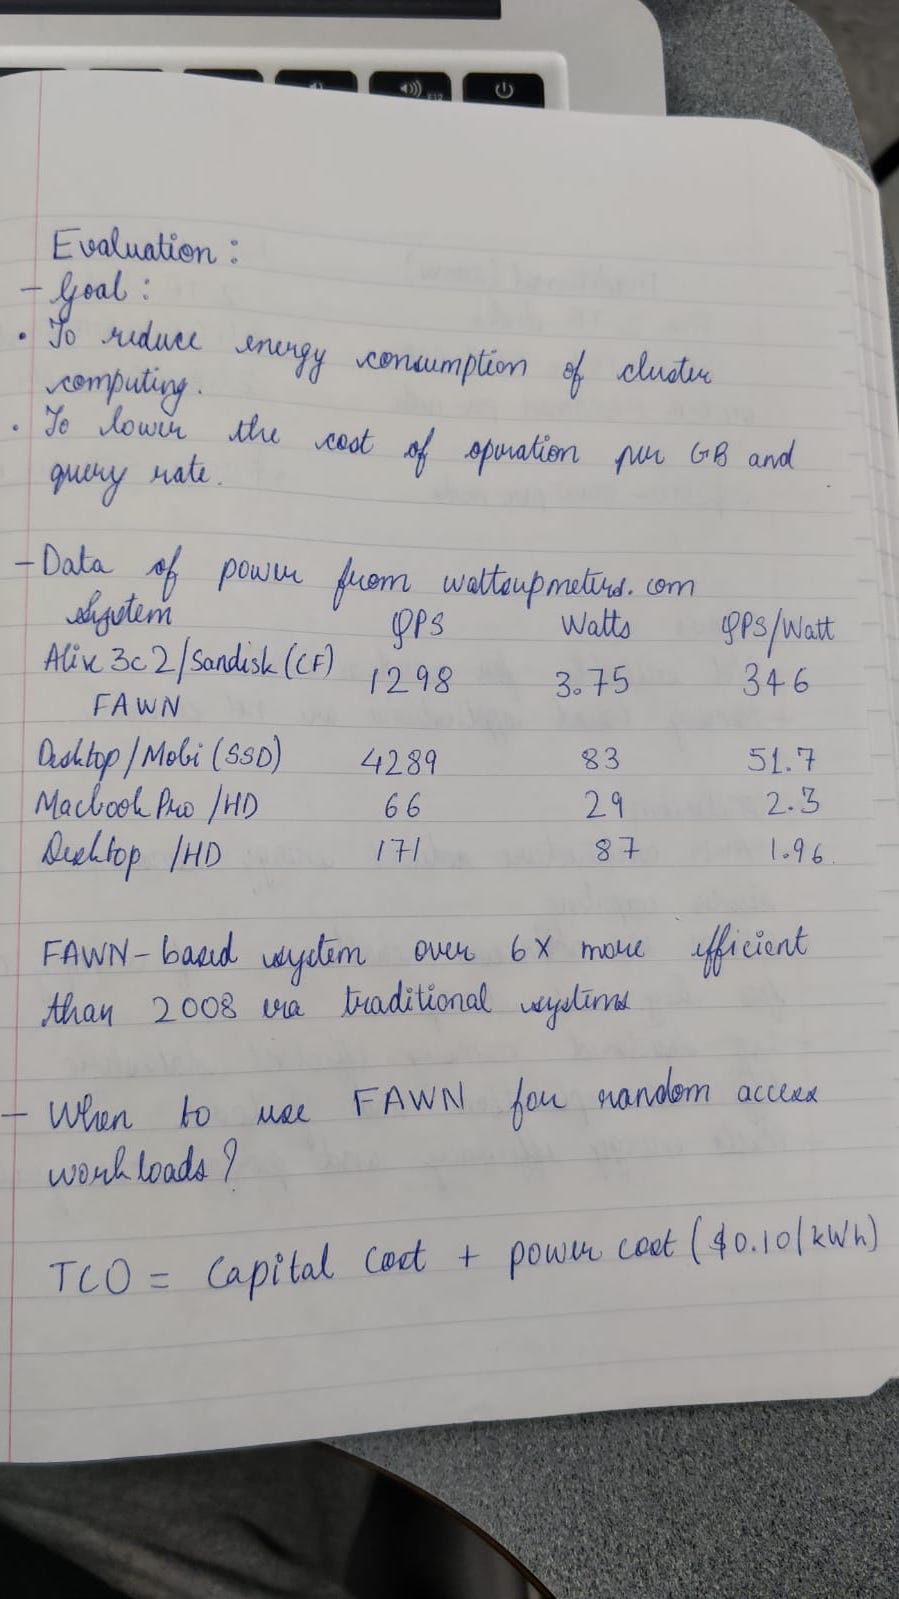 Evaluation:
- Goal:
• To reduce energy consumption of cluster
computing.
• To lower the cost of operation per GB and
query rate.
- Data of power from wattsupmeters.com
System QPS Watts QPS/Watt
Alix 3c2/Sandisk (CF) 1298 3.75 346
FAWN
Desktop/Mobi (SSD) 4289 83 51.7
Macbook Pro /HD 66 29 2.3
Desktop /HD 171 87 1.96
FAWN-based system over 6X more efficient
than 2008 era traditional systems
- When to use FAWN for random access
workloads?
TCO = Capital Cost + power cost ($0.10/kWh)